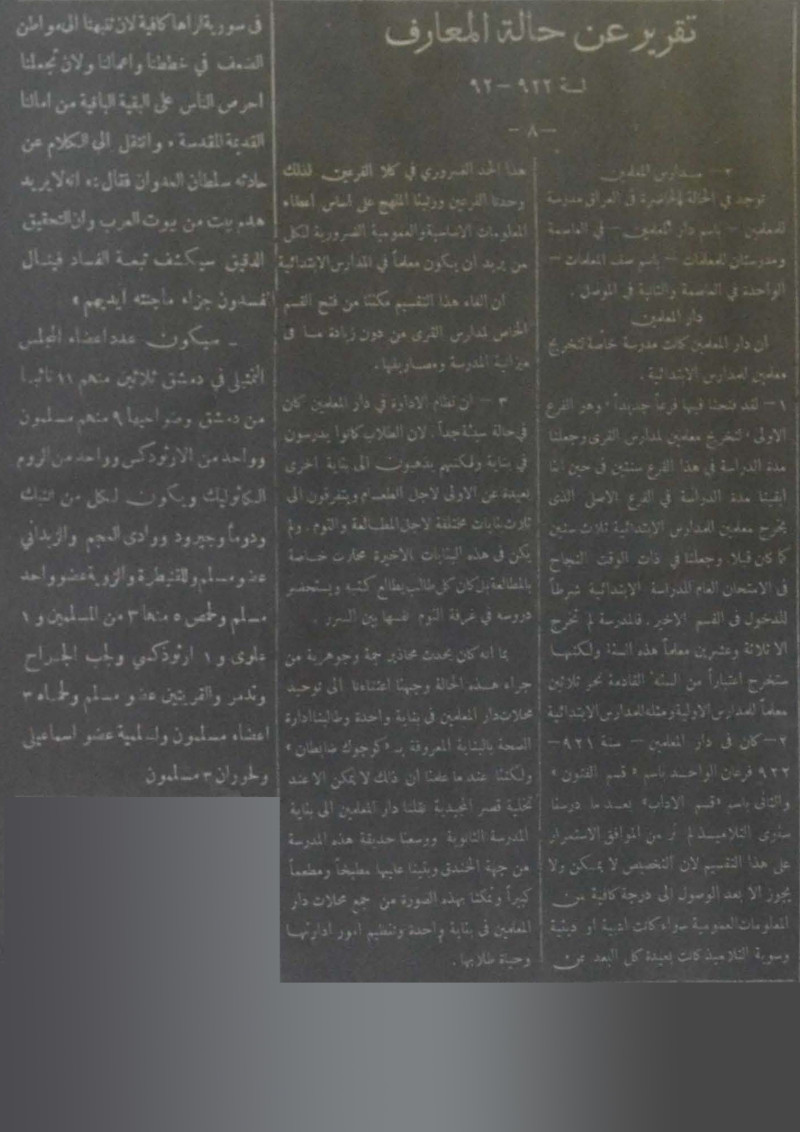 تقرير عن حالة المعارف
لسنة ٩٢٢ - ٩٢
- ٨ -
٢ - مدارس المعلمين
توجد في الحالة الحاضرة في العراق مدرسة
للمعلمين - باسم دار المعلمين - في العاصمة
ومدرستان للمعلمات - باسم صف المعلمات -
الواحدة في العاصمة والثانية في الموصل .
دار المعلمين
ان دار المعلمين كانت مدرسة خاصة لتخريج
معلمين للمدارس الابتدائية .
١ - لقد فتحنا فيها فرعاً جديداً وهو الفرع
الاولى لتخريج معلمين لمدارس القرى وجعلنا
مدة الدراسة في هذا الفرع سنتين في حين اننا
ابقينا مدة الدراسة في الفرع الاصلي الذي
يخرج معلمين للمدارس الابتدائية ثلاث سنين
كما كان قبلا وجعلنا في ذات الوقت النجاح
في الامتحان العام للدراسة الابتدائية شرطاً
للدخول في القسم الاخير . فالمدرسة لم تخرج
الا ثلاثة وعشرين معلماً هذه السنة ولكنها
ستخرج اعتباراً من السنة القادمة نحو ثلاثين
معلماً للمدارس الاولية ومثله للمدارس الابتدائية
٢ - كان في دار المعلمين - سنة ٩٢١ -
٩٢٢ فرعان الواحد باسم « قسم الفنون »
والثاني باسم «قسم الآداب» بعد ما درسنا
سوى التلاميذ لم نر من الموافق الاستمرار
على هذا التقسيم لان التخصيص لا يمكن ولا
يجوز الا بعد الوصول الى درجة كافية من
المعلومات العمومية سواء كانت ادبية او دينية
وسوية التلاميذ كانت بعيدة كل البعد عن
هذا الحد الضروري في كلا الفرعين لذلك
وحدنا الفرعين ورتبنا المنهج على اساس اعطاء
المعلومات الاساسية والعمومية الضرورية لكل
من يريد أن يكون معلماً في المدارس الابتدائية
ان الغاء هذا التقسيم مكننا من فتح القسم
الخاص لمدارس القرى من دون زيادة ما في
ميزانية المدرسة ومصاريفها .
٣ - ان نظام الادارة في دار المعلمين كان
في حالة سيئة جداً . لان الطلاب كانوا يدرسون
في بناية ولكنهم يذهبون الى بناية اخرى
بعيدة عن الاولى لاجل الطعام ويتفرقون الى
ثلاث بنايات مختلفة لاجل المطالعة والنوم . ولم
يكن في هذه البنايات الاخيرة محلات خاصة
بالمطالعة بل كان كل طالب يطالع كتبه ويستحضر
دروسه في غرفة النوم نفسها بين السرر .
بما انه كان يحدث محاذير جمة وجوهرية من
جراء هذه الحالة وجهنا اعتناءنا الى توحيد
محلات دار المعلمين في بناية واحدة وطالبنا ادارة
الصحة بالبناية المعروفة بـ «كوجوك ضابطان»
ولكننا عند ما علمنا أن ذلك لا يمكن الا عند
تخلية قصر المجيدية نقلنا دار المعلمين الى بناية
المدرسة الثانوية ووسعنا حديقة هذه المدرسة
من جهة الخندق وبنينا عليها مطبخاً ومطعماً
كبيراً وتمكنا بهذه الصورة من جمع محلات دار
المعلمين في بناية واحدة وتنظيم امور ادارتها
وحياة طلابها .
في سورية اراها كافية لان تنبهنا الى مواطن
الضعف في خططنا واعمالنا ولان تجعلنا
احرص الناس على البقية الباقية من امالنا
القديمة المقدسة » وانتقل الى الكلام عن
حادثه سلطان العدوان فقال : « انه لا يريد
هدم بيت من بيوت العرب وان التحقيق
الدقيق سيكشف تبعة الفساد فينال
المفسدون جزاء ماجنته ايديهم »
- سيكون عدد اعضاء المجلس
التمثيلي في دمشق ثلاثين منهم ١١ نائبا
من دمشق وضواحيها ٩ منهم مسلمون
وواحد من الارثوذكس وواحد من الروم
الكاثوليك ويكون لكل من النبك
ودوما وجيرود ووادي العجم والزبداني
عضو مسلم وللقنيطرة والزوية عضو واحد
مسلم ولحمص ٥ منها ٣ من المسلمين و ١
علوى و ١ ارثوذكسي ولجب الجراح
وتدمر والقريتين عضو مسلم ولحماه ٣
اعضاء مسلمون والسلمية عضو اسماعيلي
ولحوران ٣ مسلمون